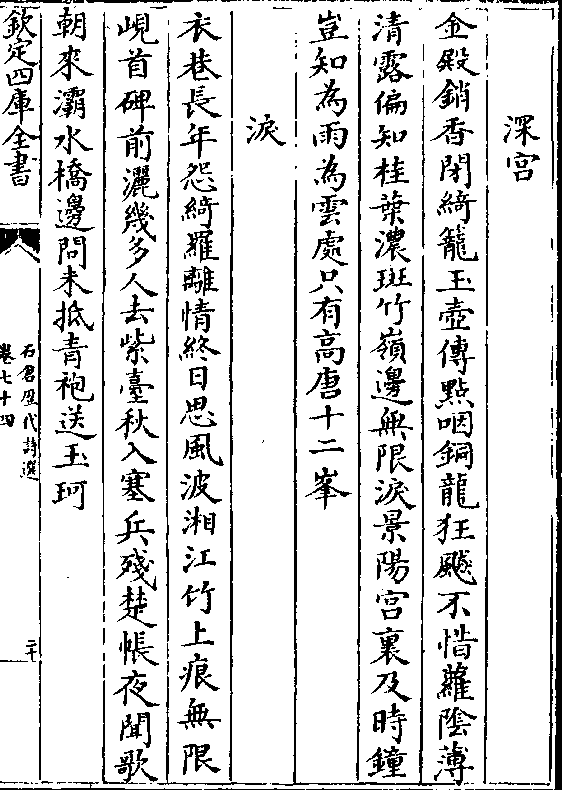 深宫
金殿銷香閉綺籠玉壺傳點咽銅龍狂飈不惜蘿陰薄
清露偏知桂葉濃斑竹嶺邊無限淚景陽宫裏及時鐘
豈知為雨為雲處只有高唐十二峯
淚
衣巷長年怨綺羅離情終日思風波湘江竹上痕無限
峴首碑前灑幾多人去紫臺秋入塞兵殘楚帳夜聞歌
朝來灞水橋邊問未抵青袍送玉珂
欽定四庫全書
石倉歷代詩選
卷七十四
二十